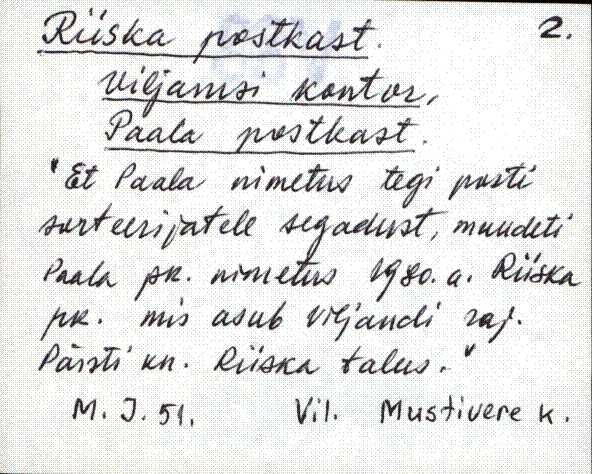 Riiska postkast. 2.
Viljansi kontor,
Paala postkast.
"Et Paala nimetus tegi posti
sorteerijatele segadust, muudeti
Paala pk. nimetus 1980. a. Riiska
pk. mis asub Viljandi raj.
Päisti kn. Riiska talus."
M. J. 51. Vil. Mustivere k.